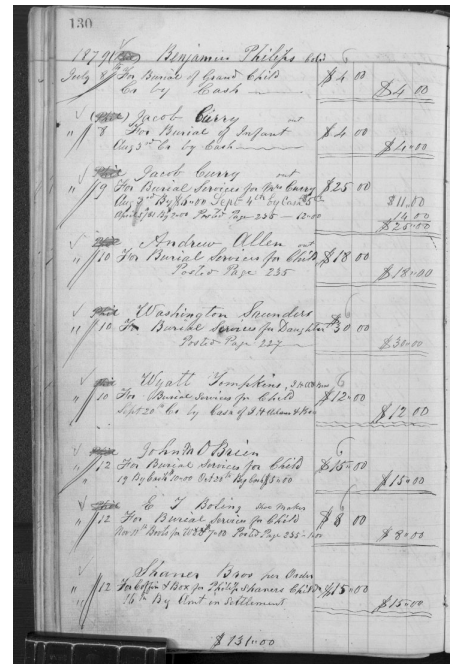 130
1879 Benjamin Philips
July 8 For Burial of Grand Child $4 00
Cr by Cash $4 00
Jacob Curry
" 8 For Burial of Infant $4 00
Aug 3rd Cr by Cash $4.00
Jacob Curry
" 9 For Burial Services for Mrs Curry $25 00
Aug 3rd By $6.00 Sept 4th by Cash $11.00
Posted Page 235 — 12.00 14.00
$25.00
Andrew Allen
" 10 For Burial Services for Child $18 00
Posted Page 235 $18.00
Washington Saunders
" 10 For Burial Services for Daughter $30 00
Posted Page 227 $30.00
Wyatt Tompkins
" 10 For Burial Services for Child $12.00
Sept 20th Cr by Cash of $12.00
John M O'Brien
" 12 For Burial Services for Child $15.00
19 By Cash 10.00 Oct 20th By Cash $5.00 $15.00
E T Boling Shoe Maker
" 12 For Burial Services for Child $8 00
Posted Page 235 $8.00
Shaner Bros per Order
" 12 For Coffin & Box for Philip Shaners Child $15.00
" 16th By Amt in Settlement $15.00
$131.00